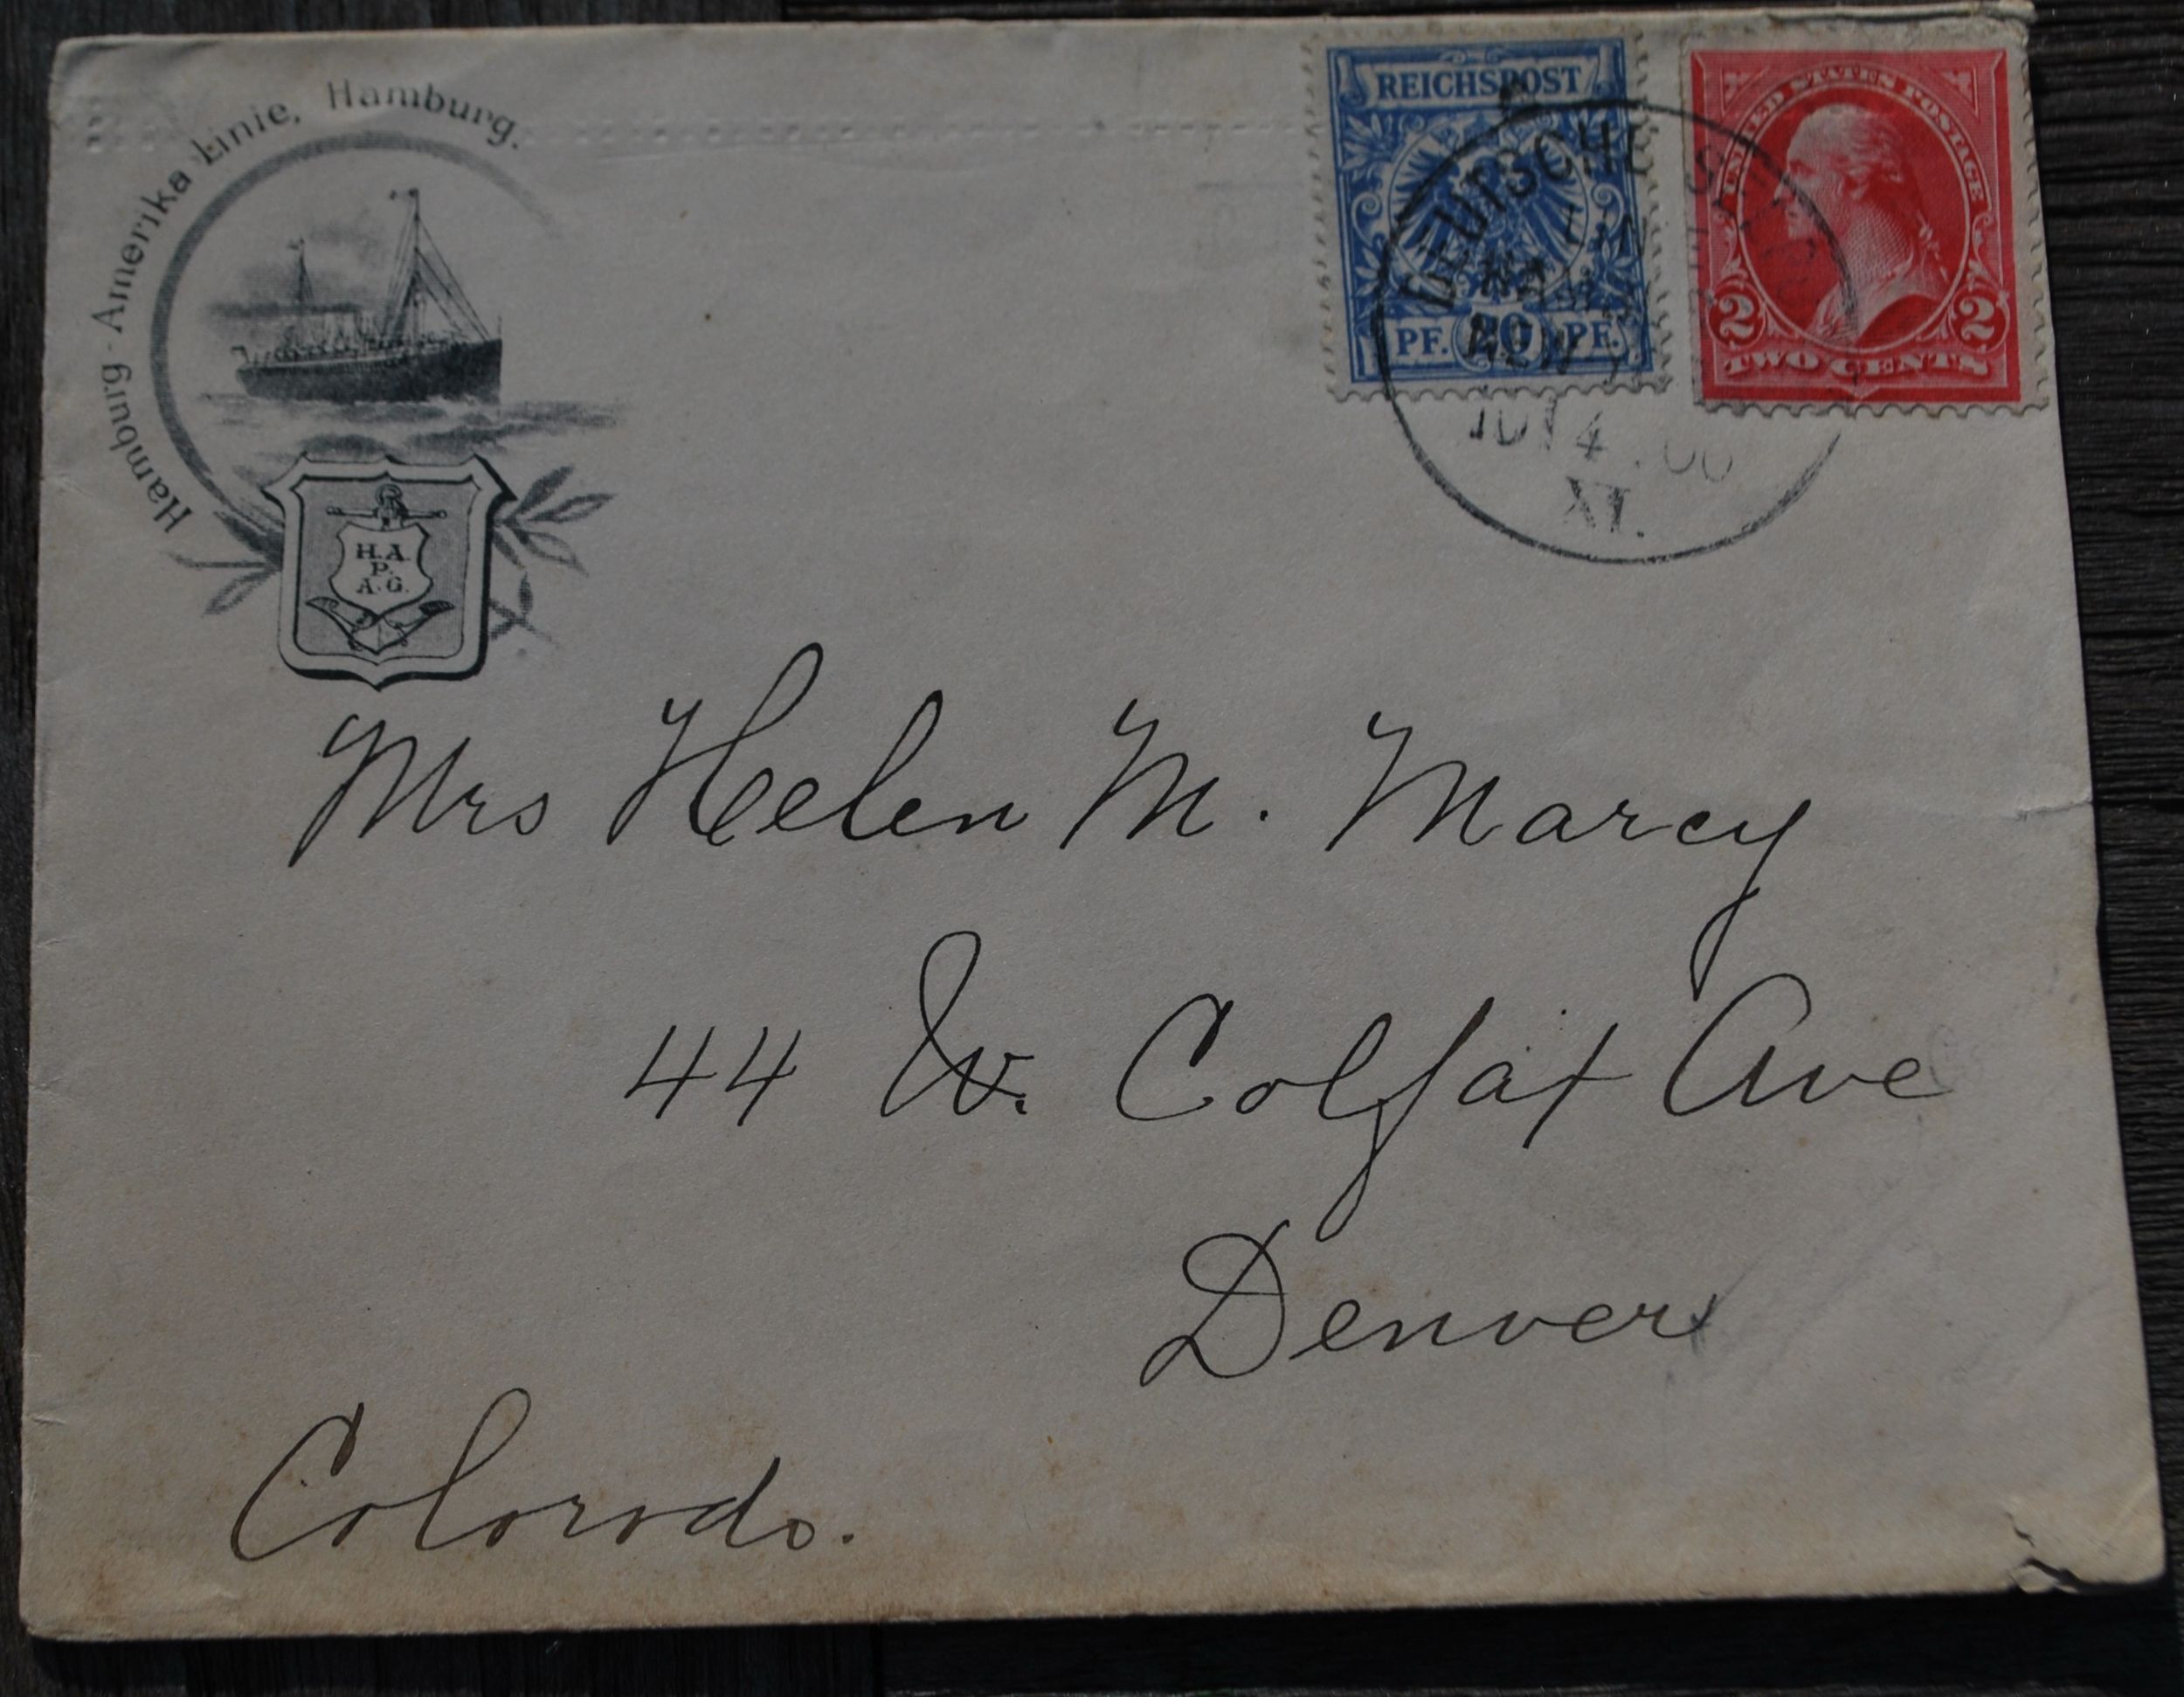 Hamburg-Amerika Linie, Hamburg.
H.A.
P.
A.G.
REICHSPOST
PF. 20 PF.
UNITED STATES POSTAGE
2 2
TWO CENTS
DEUTSCHE
4 .00
XI.
Mrs Helen M. Marcy
44 W. Colfax Ave
Denver
Colorado.